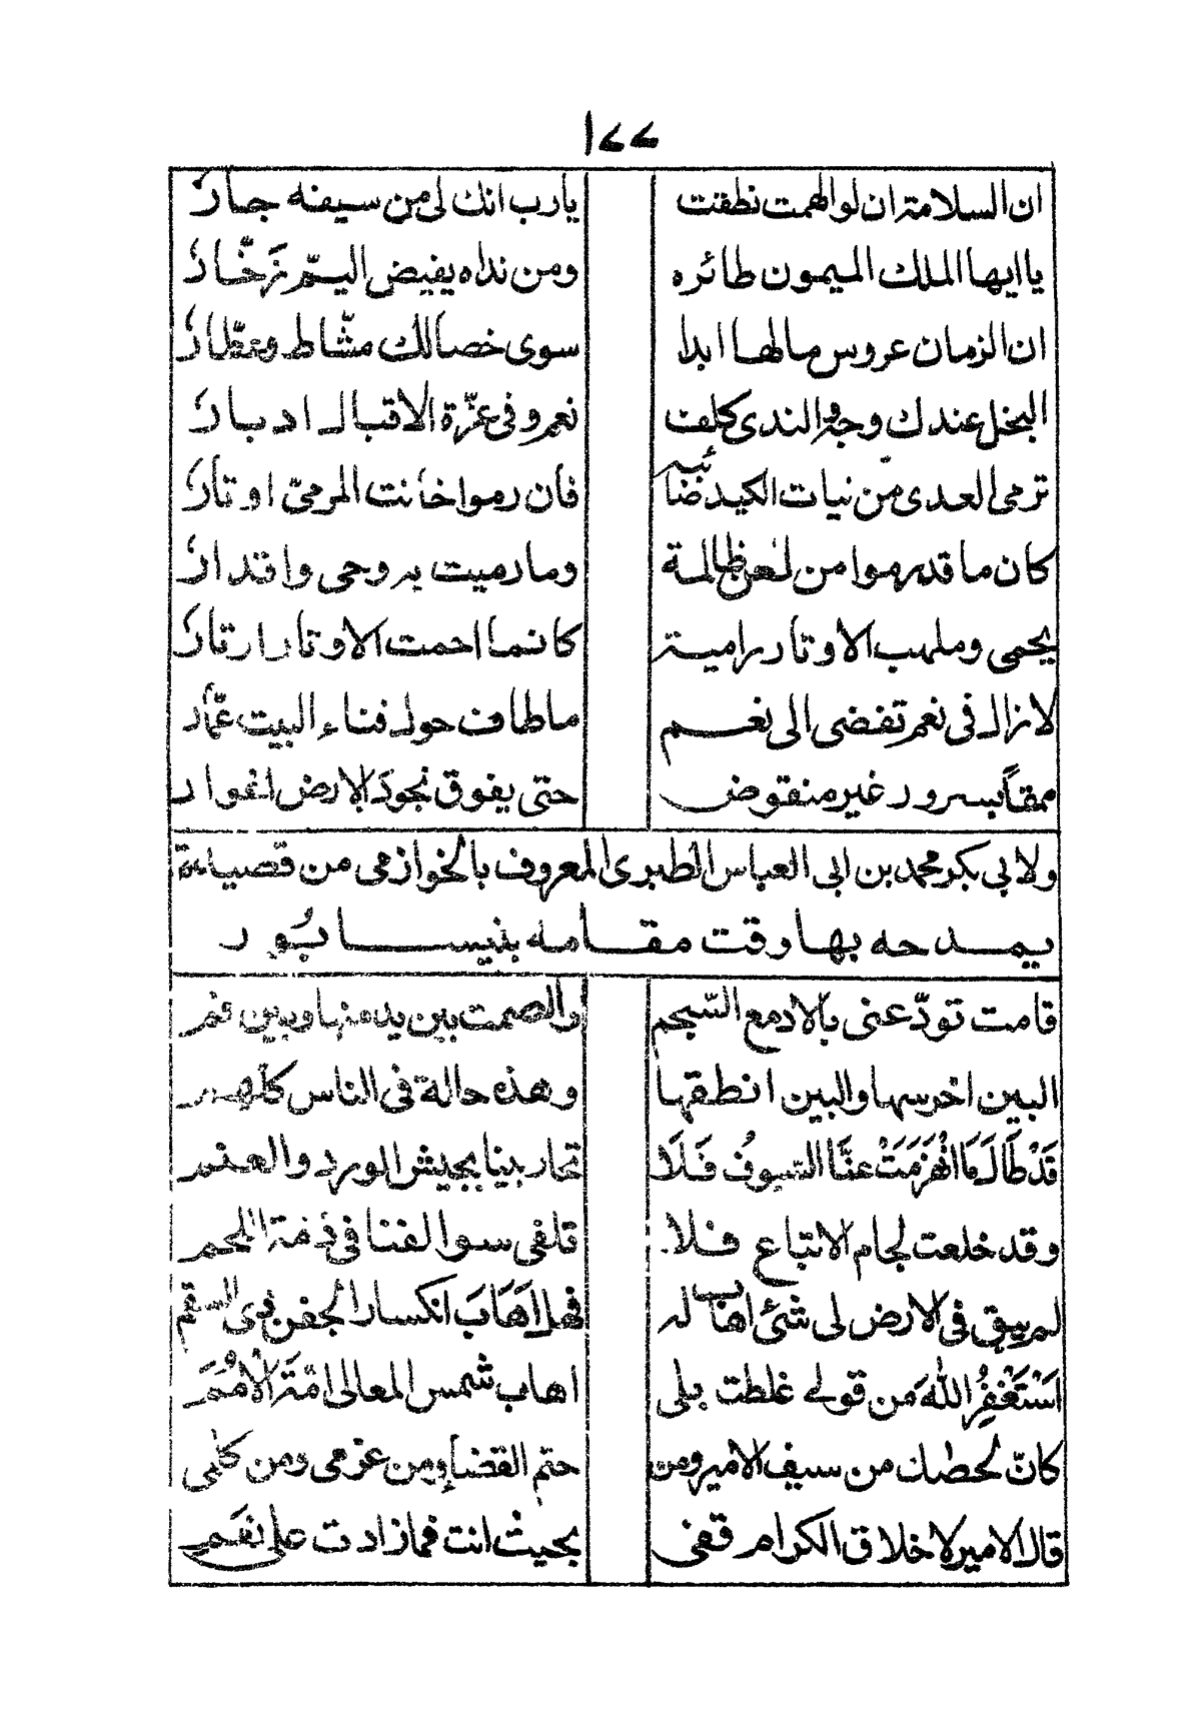 ١٧٧
ان السلامة ان لو الهمت نطقت يارب انك لى من سيفه جار
يا ايها الملك الميمون طائره ومن نداه يفيض اليم زخّار
ان الزمان عروس مالها ابدا سوى خصالك مشّاط وعطّار
البخل عندك وجه والندى كلف نعم وفى عزّة الاقبال ادبار
ترمى العدى من نيات الكيد ضائبة فان رموا خانت المرمىّ اوتار
كان ما قدرموا من لعن ظالمة وما رميت به وحى واقدار
يحمى وملهب الاوتار رامية كانما احمت الاوتار ارتار
لازال فى نعم تفضى الى نعم ما طاف حول فناء البيت عمّار
ممقاً بسرور غير منقوض حتى يفوق نجود الارض اغوار
ولابي بكر محمد بن ابى العباس الطبرى المعروف بالخوازمى من قصيدة
يمدحه بها وقت مقامه بنيسابُور
قامت تودّعنى بالادمع السّجم والصمت بين يد منها وبين فم
البين اخرسها والبين انطقها وهذه حالة فى الناس كلهم
قَدْ طَالَ مَا انْهَزَمَتْ عنَّا السّيوفُ فَلَا تحاربينا بجيش الورد والعنم
وقد خلعت لجام الاتباع فلا تلفى سوا الفنا فى ذمة اللجم
لم يبق فى الارض لى شئ اهاب له فهل اَهَابَ انكسار الجفن ذى السقم
اَسْتَغْفِرُ اللهَ من قولى غلطت بلى اهاب شمس المعالى امّةَ الْاُمَمَ
كانّ لحظك من سيف الامير ومن حتم القضاء ومن عزمى ومن كلمى
قال الامير لاخلاق الكرام قفى بحيث انت فما زادت على نعم